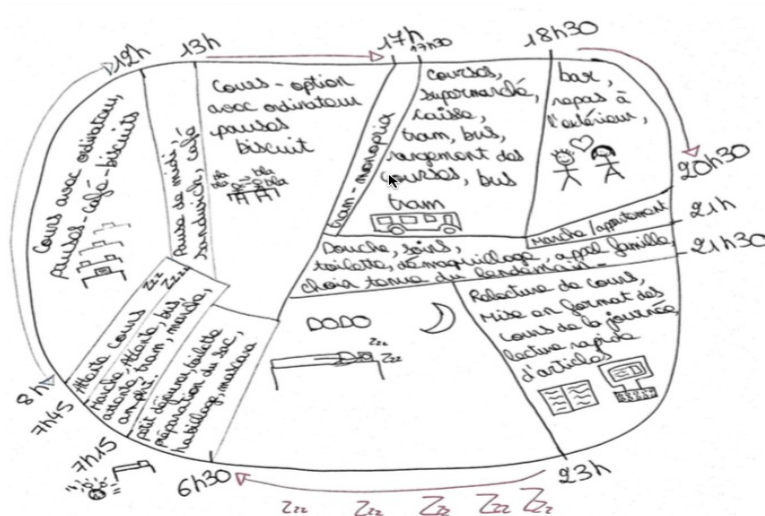 12h
13h
17h
17h30
18h30
20h30
21h
21h30
23h
6h30
7h15
7h45
8h
Cours avec ordinateur,
pauses-café-biscuits
Pause de midi,
sandwich, café
Cours-option
avec ordinateur
pauses
biscuit
bla
bla
bla
bla
tram-monoprix
courses,
supermarché,
caisse,
tram, bus,
rangement des
courses, bus
tram
bar,
repas à
l'extérieur,
Marche/appartement
Douche, soins,
toilette, démaquillage, appel famille,
choix tenue du lendemain
Relecture de cours,
Mise en format des
cours de la journée,
lecture rapide
d'articles
DODO
Zzz
Zzz
petit déjeuner, toilette
préparation du sac,
habillage, mascara
Marche, attente, bus,
attente, tram, marche,
Attente cours
Zzz
Zzzz
Zzz Zzz Zzz Zzz Zzz